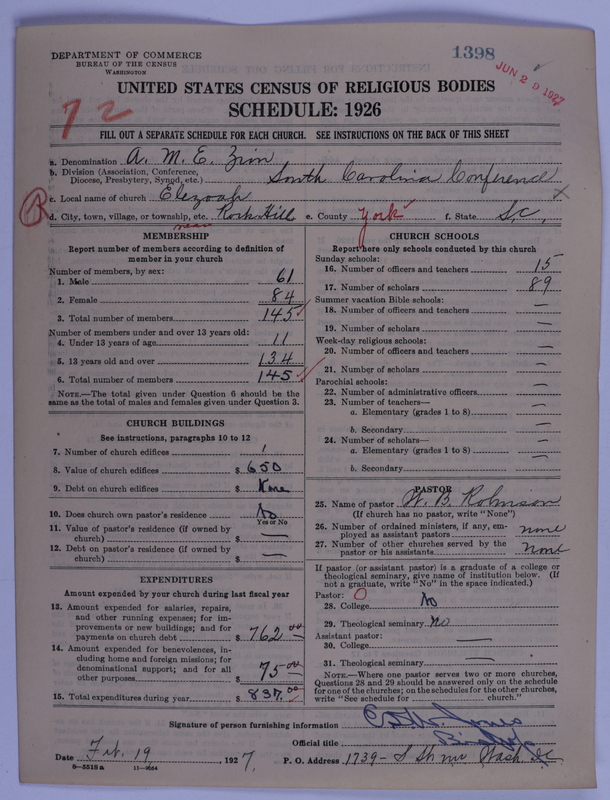 1398
JUN 29 1927
DEPARTMENT OF COMMERCE
BUREAU OF THE CENSUS
WASHINGTON
UNITED STATES CENSUS OF RELIGIOUS BODIES
SCHEDULE: 1926
72
FILL OUT A SEPARATE SCHEDULE FOR EACH CHURCH. SEE INSTRUCTIONS ON THE BACK OF THIS SHEET
a. Denomination A. M. E. Zion
b. Division (Association, Conference,
Diocese, Presbytery, Synod, etc.) South Carolina Conference
c. Local name of church
d. City, town, village, or township, etc. Rock Hill e. County York f. State S.C.
near
MEMBERSHIP
Report number of members according to definition of
member in your church
Number of members, by sex:
1. Male 61
2. Female 84
3. Total number of members 145
Number of members under and over 13 years old:
4. Under 13 years of age 11
5. 13 years old and over 134
6. Total number of members 145
NOTE.—The total given under Question 6 should be
same as the total of males and females given under Question 3.
CHURCH BUILDINGS
See instructions, paragraphs 10 to 12
7. Number of church edifices 1
8. Value of church edifices $ 650
9. Debt on church edifices $ None
10. Does church own pastor's residence No
Yes or No
11. Value of pastor's residence (if owned by
church) $ —
12. Debt on pastor's residence (if owned by
church) $ —
EXPENDITURES
Amount expended by your church during last fiscal year
13. Amount expended for salaries, repairs,
and other running expenses; for im-
provements or new buildings; and for
payments on church debt $ 762.00
14. Amount expended for benevolences, in-
cluding home and foreign missions; for
denominational support; and for all
other purposes $ 75.00
15. Total expenditures during year $ 837.00
CHURCH SCHOOLS
Report here only schools conducted by this church
Sunday schools:
16. Number of officers and teachers 15
17. Number of scholars 89
Summer vacation Bible schools:
18. Number of officers and teachers —
19. Number of scholars —
Week-day religious schools:
20. Number of officers and teachers —
21. Number of scholars —
Parochial schools:
22. Number of administrative officers —
23. Number of teachers—
a. Elementary (grades 1 to 8) —
b. Secondary —
24. Number of scholars—
a. Elementary (grades 1 to 8) —
b. Secondary —
PASTOR
25. Name of pastor W. B. Robinson
(If church has no pastor, write "None")
26. Number of ordained ministers, if any, em-
ployed as assistant pastors none
27. Number of other churches served by the
pastor or his assistants None
If pastor (or assistant pastor) is a graduate of a college or
theological seminary, give name of institution below. (If
not a graduate, write "No" in the space indicated.)
Pastor:
28. College No
29. Theological seminary No
Assistant pastor:
30. College —
31. Theological seminary —
NOTE.—Where one pastor serves two or more churches,
Questions 28 and 29 should be answered only on the schedule
for one of the churches; on the schedules for the other churches,
write "See schedule for church."
Signature of person furnishing information Jones
Official title Bishop
Date Feb. 19, 1927. P. O. Address 1739- S St nw Wash. D.C.
8—5518a 11—9054